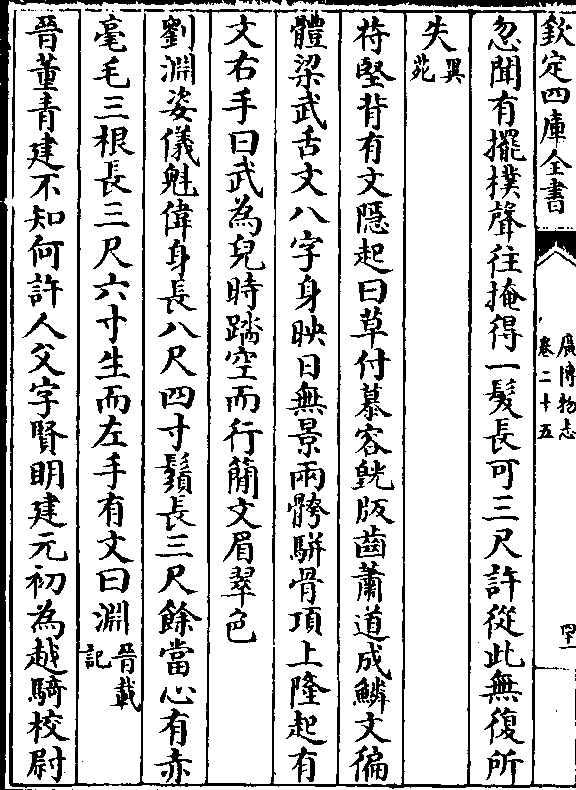 欽定四庫全書
廣博物志
卷二十五
四一
忽聞有擺樸聲往掩得一髮長可三尺許從此無復所
失異苑
苻堅背有文隱起曰草付慕容皝版齒蕭道成鱗文徧
體梁武舌文八字身映日無景兩骻駢骨項上隆起有
文右手曰武為兒時蹹空而行簡文眉翠色
劉淵姿儀魁偉身長八尺四寸鬚長三尺餘當心有赤
毫毛三根長三尺六寸生而左手有文曰淵晉載記
晉董青建不知何許人父字賢明建元初為越騎校尉